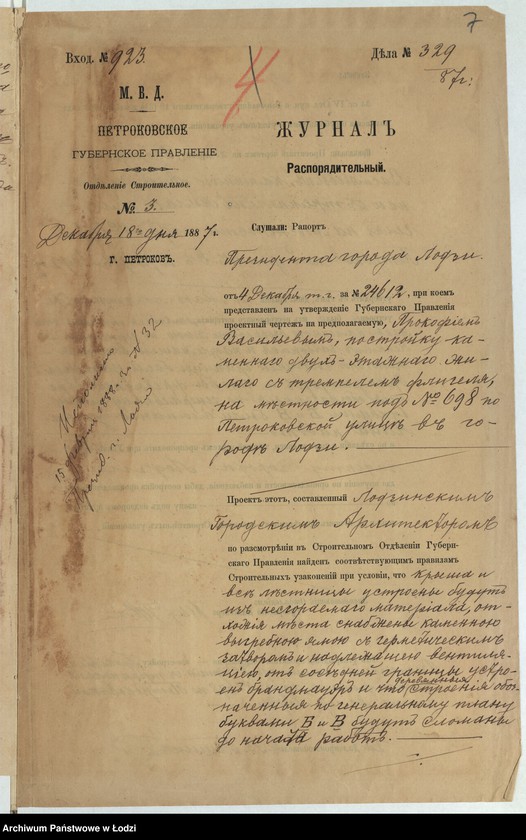 7
Вход. № 923.
Дѣла № 329
87 г.
4
М. В. Д.
ПЕТРОКОВСКОЕ
ГУБЕРНСКОЕ ПРАВЛЕНІЕ
Отдѣленіе Строительное.
№ 3.
Декабря 18го дня 1887 г.
Г. ПЕТРОКОВЪ.
ЖУРНАЛЪ
Распорядительный.
Слушали: Рапортъ
Президента города Лодзи
отъ 4 Декабря т. г. за № 24612, при коемъ
представленъ на утвержденіе Губернскаго Правленія
проектный чертежъ на предполагаемую, Прокофіемъ
Васильевымъ, постройку ка-
меннаго двухъ-этажнаго жи-
лаго съ тремпелемъ флигеля,
на мѣстности подъ № 698 по
Петроковской улицѣ въ го-
родѣ Лодзи.
Исполнено
15 1888 г. № 32
Презид. г. Лодзи
Проектъ этотъ, составленный Лодзинскимъ
Городскимъ Архитекторомъ
по разсмотрѣніи въ Строительномъ Отдѣленіи Губерн-
скаго Правленія найденъ соотвѣтствующимъ правиламъ
Строительныхъ узаконеній при условіи, что крыша и
всѣ лѣстницы устроены будутъ
изъ несгораемаго матеріала, от-
хожія мѣста снабжены каменною
выгребною ямою съ герметическимъ
затворомъ и надлежащею вентиля-
ціею, отъ сосѣдней границы устро-
енъ брандмауэръ и что деревянныя строенія обо-
значенныя по генеральному плану
буквами Б и В будутъ сломаны
до начала работъ.
Archiwum Państwowe w Łodzi